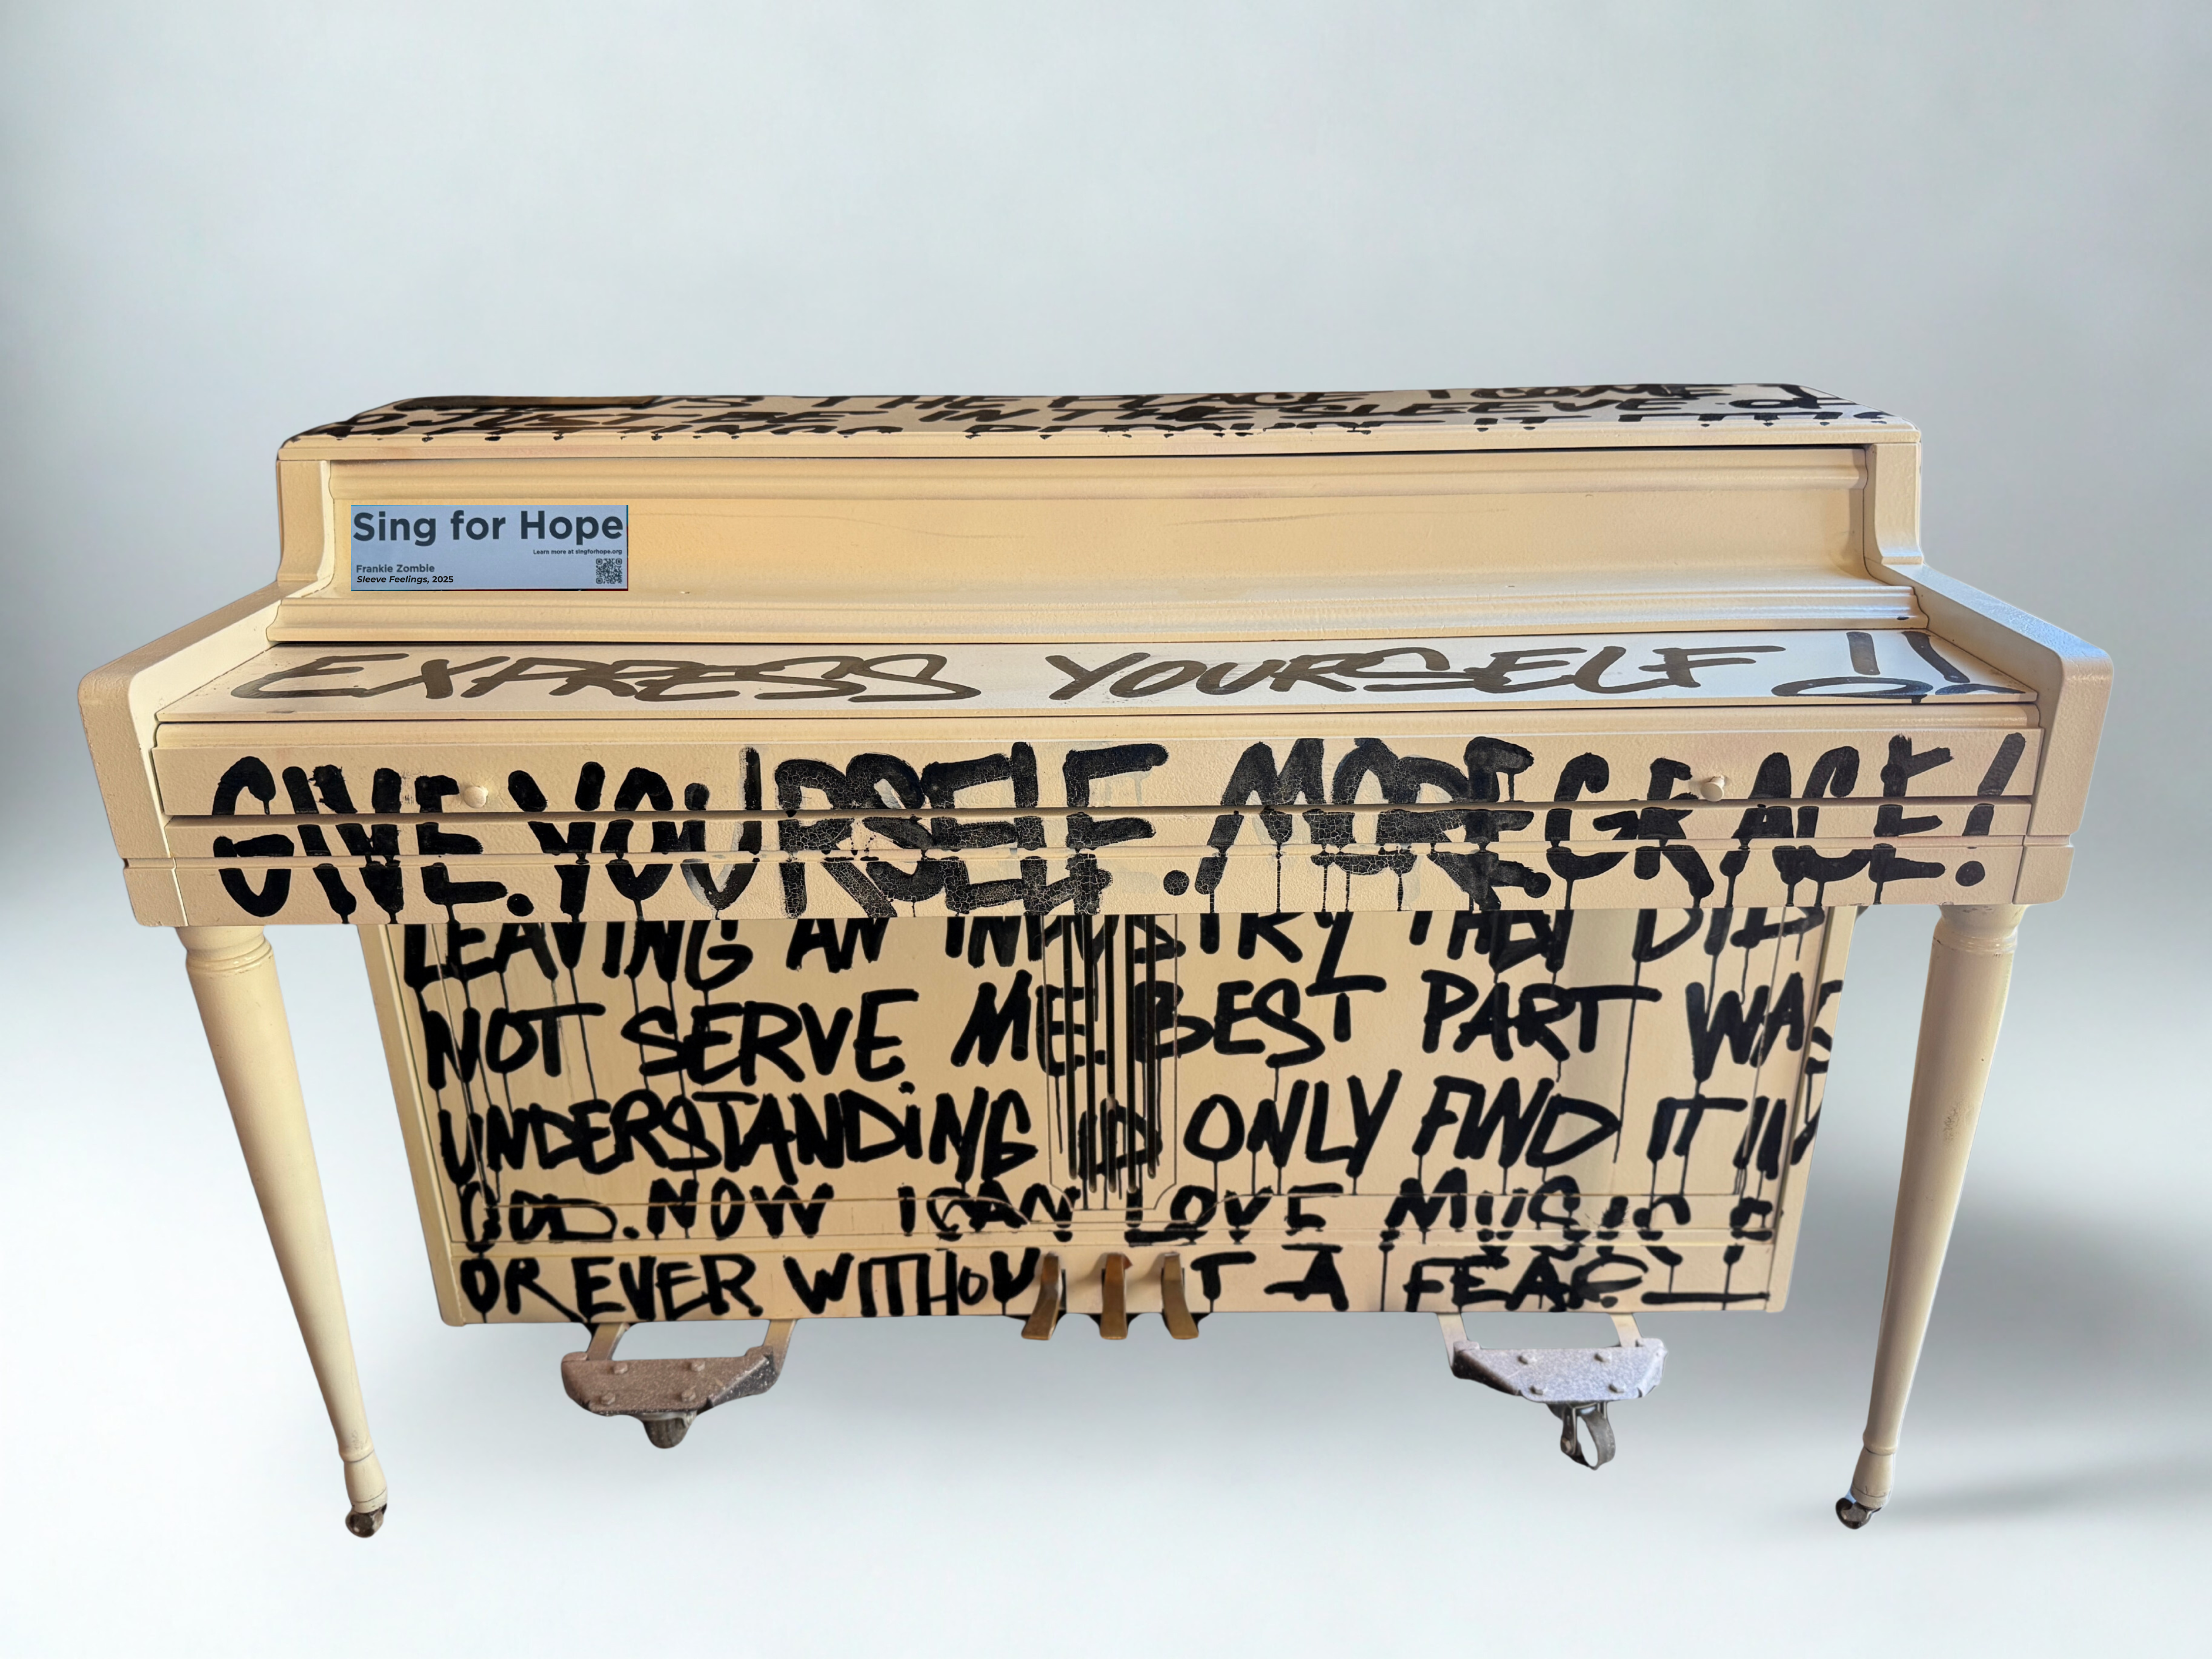 IS THE PLACE I COME T
O JUST BE IN THE SLEEVE OF
BECAUSE IT
Sing for Hope
Learn more at singforhope.org
Frankie Zombie
Sleeve Feelings, 2025
EXPRESS YOURSELF!!
GIVE.YOURSELF.MORE GRACE!
LEAVING AN INDUSTRY THAT DID
NOT SERVE ME. BEST PART WAS
UNDERSTANDING ID ONLY FIND IT IN
GOD. NOW I CAN LOVE MUSIC F
OR EVER WITHOUT A FEAR